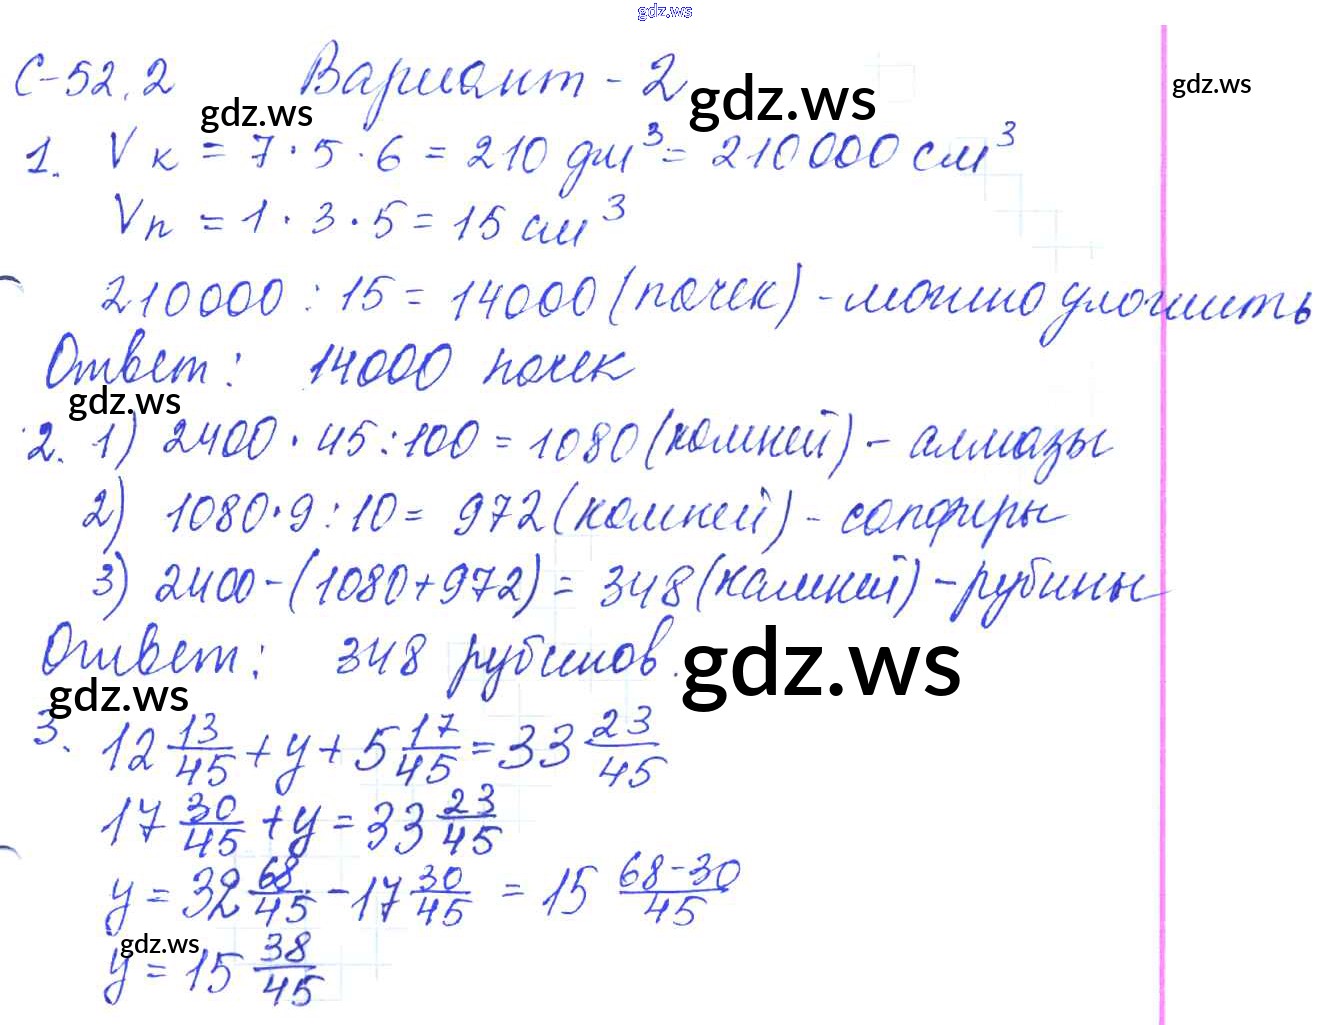 gdz.ws
С-52.2 Вариант - 2
gdz.ws gdz.ws gdz.ws
1. Vк = 7 · 5 · 6 = 210 дм³ = 210000 см³
Vп = 1 · 3 · 5 = 15 см³
210000 : 15 = 14000 (пачек) - можно уложить
Ответ: 14000 пачек
gdz.ws
2. 1) 2400 · 45 : 100 = 1080 (камней) - алмазы
2) 1080 · 9 : 10 = 972 (камней) - сапфиры
3) 2400 - (1080 + 972) = 348 (камней) - рубины
Ответ: 348 рубинов.
gdz.ws gdz.ws
3. 12 13/45 + y + 5 17/45 = 33 23/45
17 30/45 + y = 33 23/45
y = 32 68/45 - 17 30/45 = 15 68-30/45
gdz.ws
y = 15 38/45